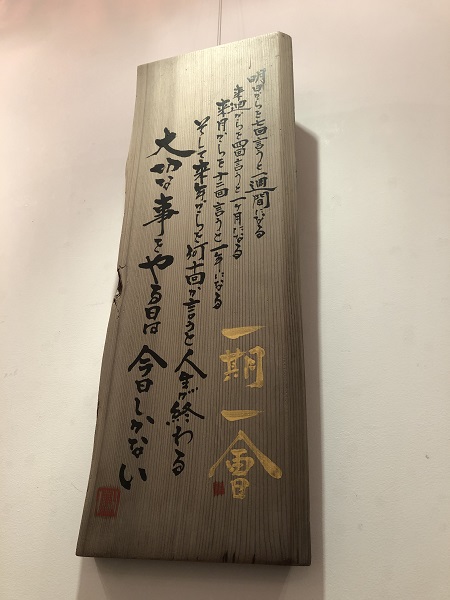 明日からを七回言うと一週間になる
来週からを四回言うと一ヶ月になる
来月からを十二回言うと一年になる
そして来年からを何十回か言うと人生が終わる
大切な事をやる日は今日しかない
一期一會